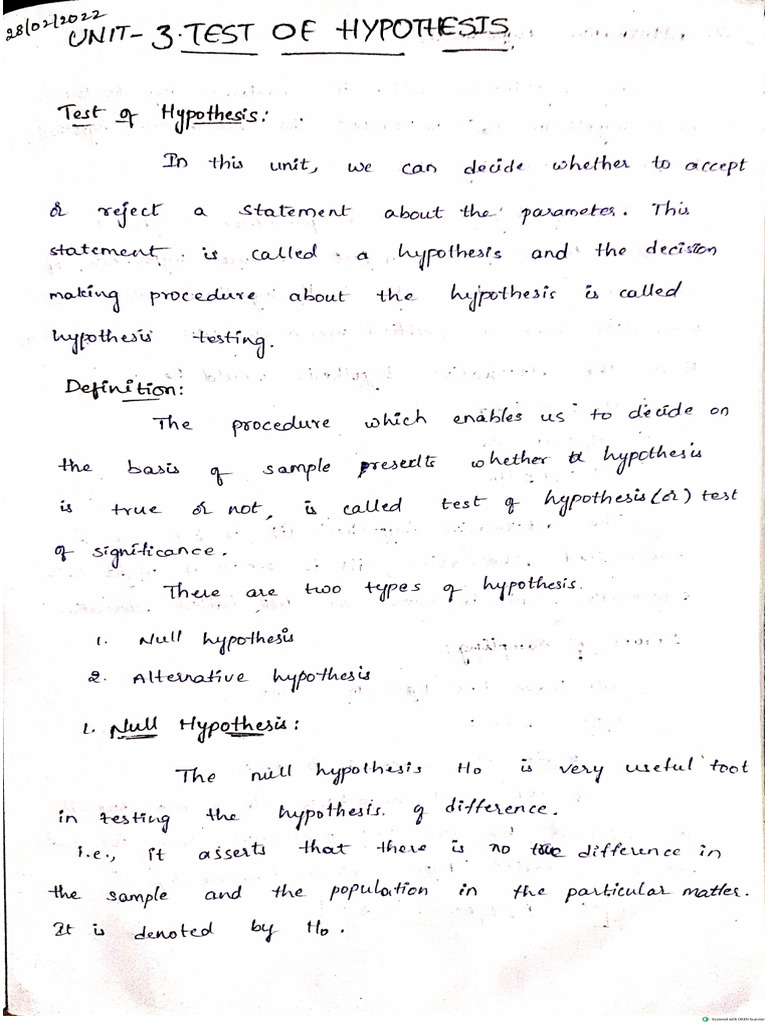 28/02/2022
UNIT- 3. TEST OF HYPOTHESIS
Test of Hypothesis:
In this unit, we can decide whether to accept
or reject a statement about the parameter. This
statement is called a hypothesis and the decision
making procedure about the hypothesis is called
hypothesis testing.
Definition:
The procedure which enables us to decide on
the basis of sample whether a hypothesis
is true or not, is called test of hypothesis (or) test
of significance.
There are two types of hypothesis.
1. Null hypothesis
2. Alternative hypothesis
1. Null Hypothesis:
The null hypothesis Ho is very useful toot
in testing the hypothesis. of difference.
i.e., it asserts that there is no true difference in
the sample and the population in the particular matter.
It is denoted by Ho.
Scanned with OKEN Scanner